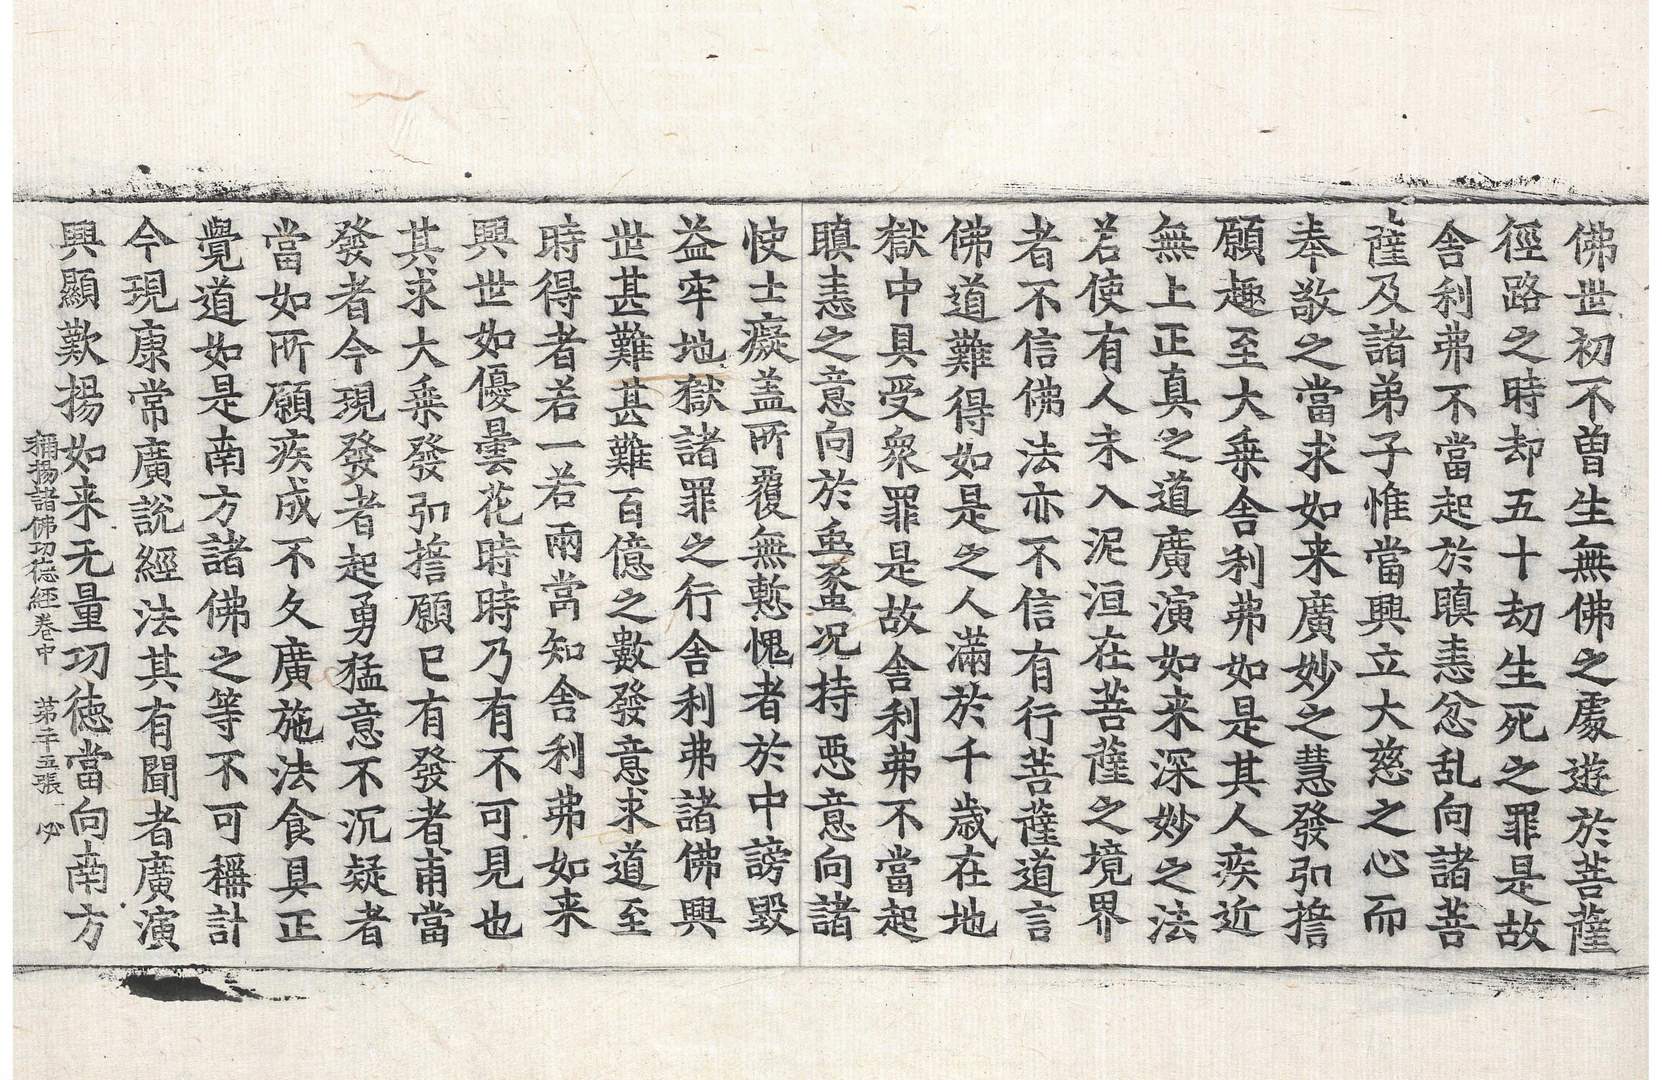 佛世初不曽生無佛之處遊於菩薩
徑路之時却五十劫生死之罪是故
舍利弗不當起於瞋恚忿乱向諸菩
薩及諸弟子惟當興立大慈之心而
奉敬之當求如来廣妙之慧發弘擔
願趣至大乗舍利弗如是其人疾近
無上正真之道廣演如来深妙之法
若使有人未入泥洹在菩薩之境界
者不信佛法亦不信有行菩薩道言
佛道難得如是之人滿於千歳在地
獄中具受衆罪是故舍利弗不當起
瞋恚之意向於䖝豸况持悪意向諸
使士癡盖所覆無慙愧者於中謗毀
益牢地獄諸罪之行舍利弗諸佛興
世甚難甚難百億之數發意求道至
時得者若一若兩當知舍利弗如来
興世如優曇花時時乃有不可見也
其求大乗發弘擔願已有發者甫當
發者今現發者起勇猛意不沉疑者
當如所願疾成不久廣施法食具正
覺道如是南方諸佛之等不可稱計
今現康常廣説經法其有聞者廣演
興顯歎揚如来无量功徳當向南方
稱揚諸佛功徳經卷中 第二十五張 必